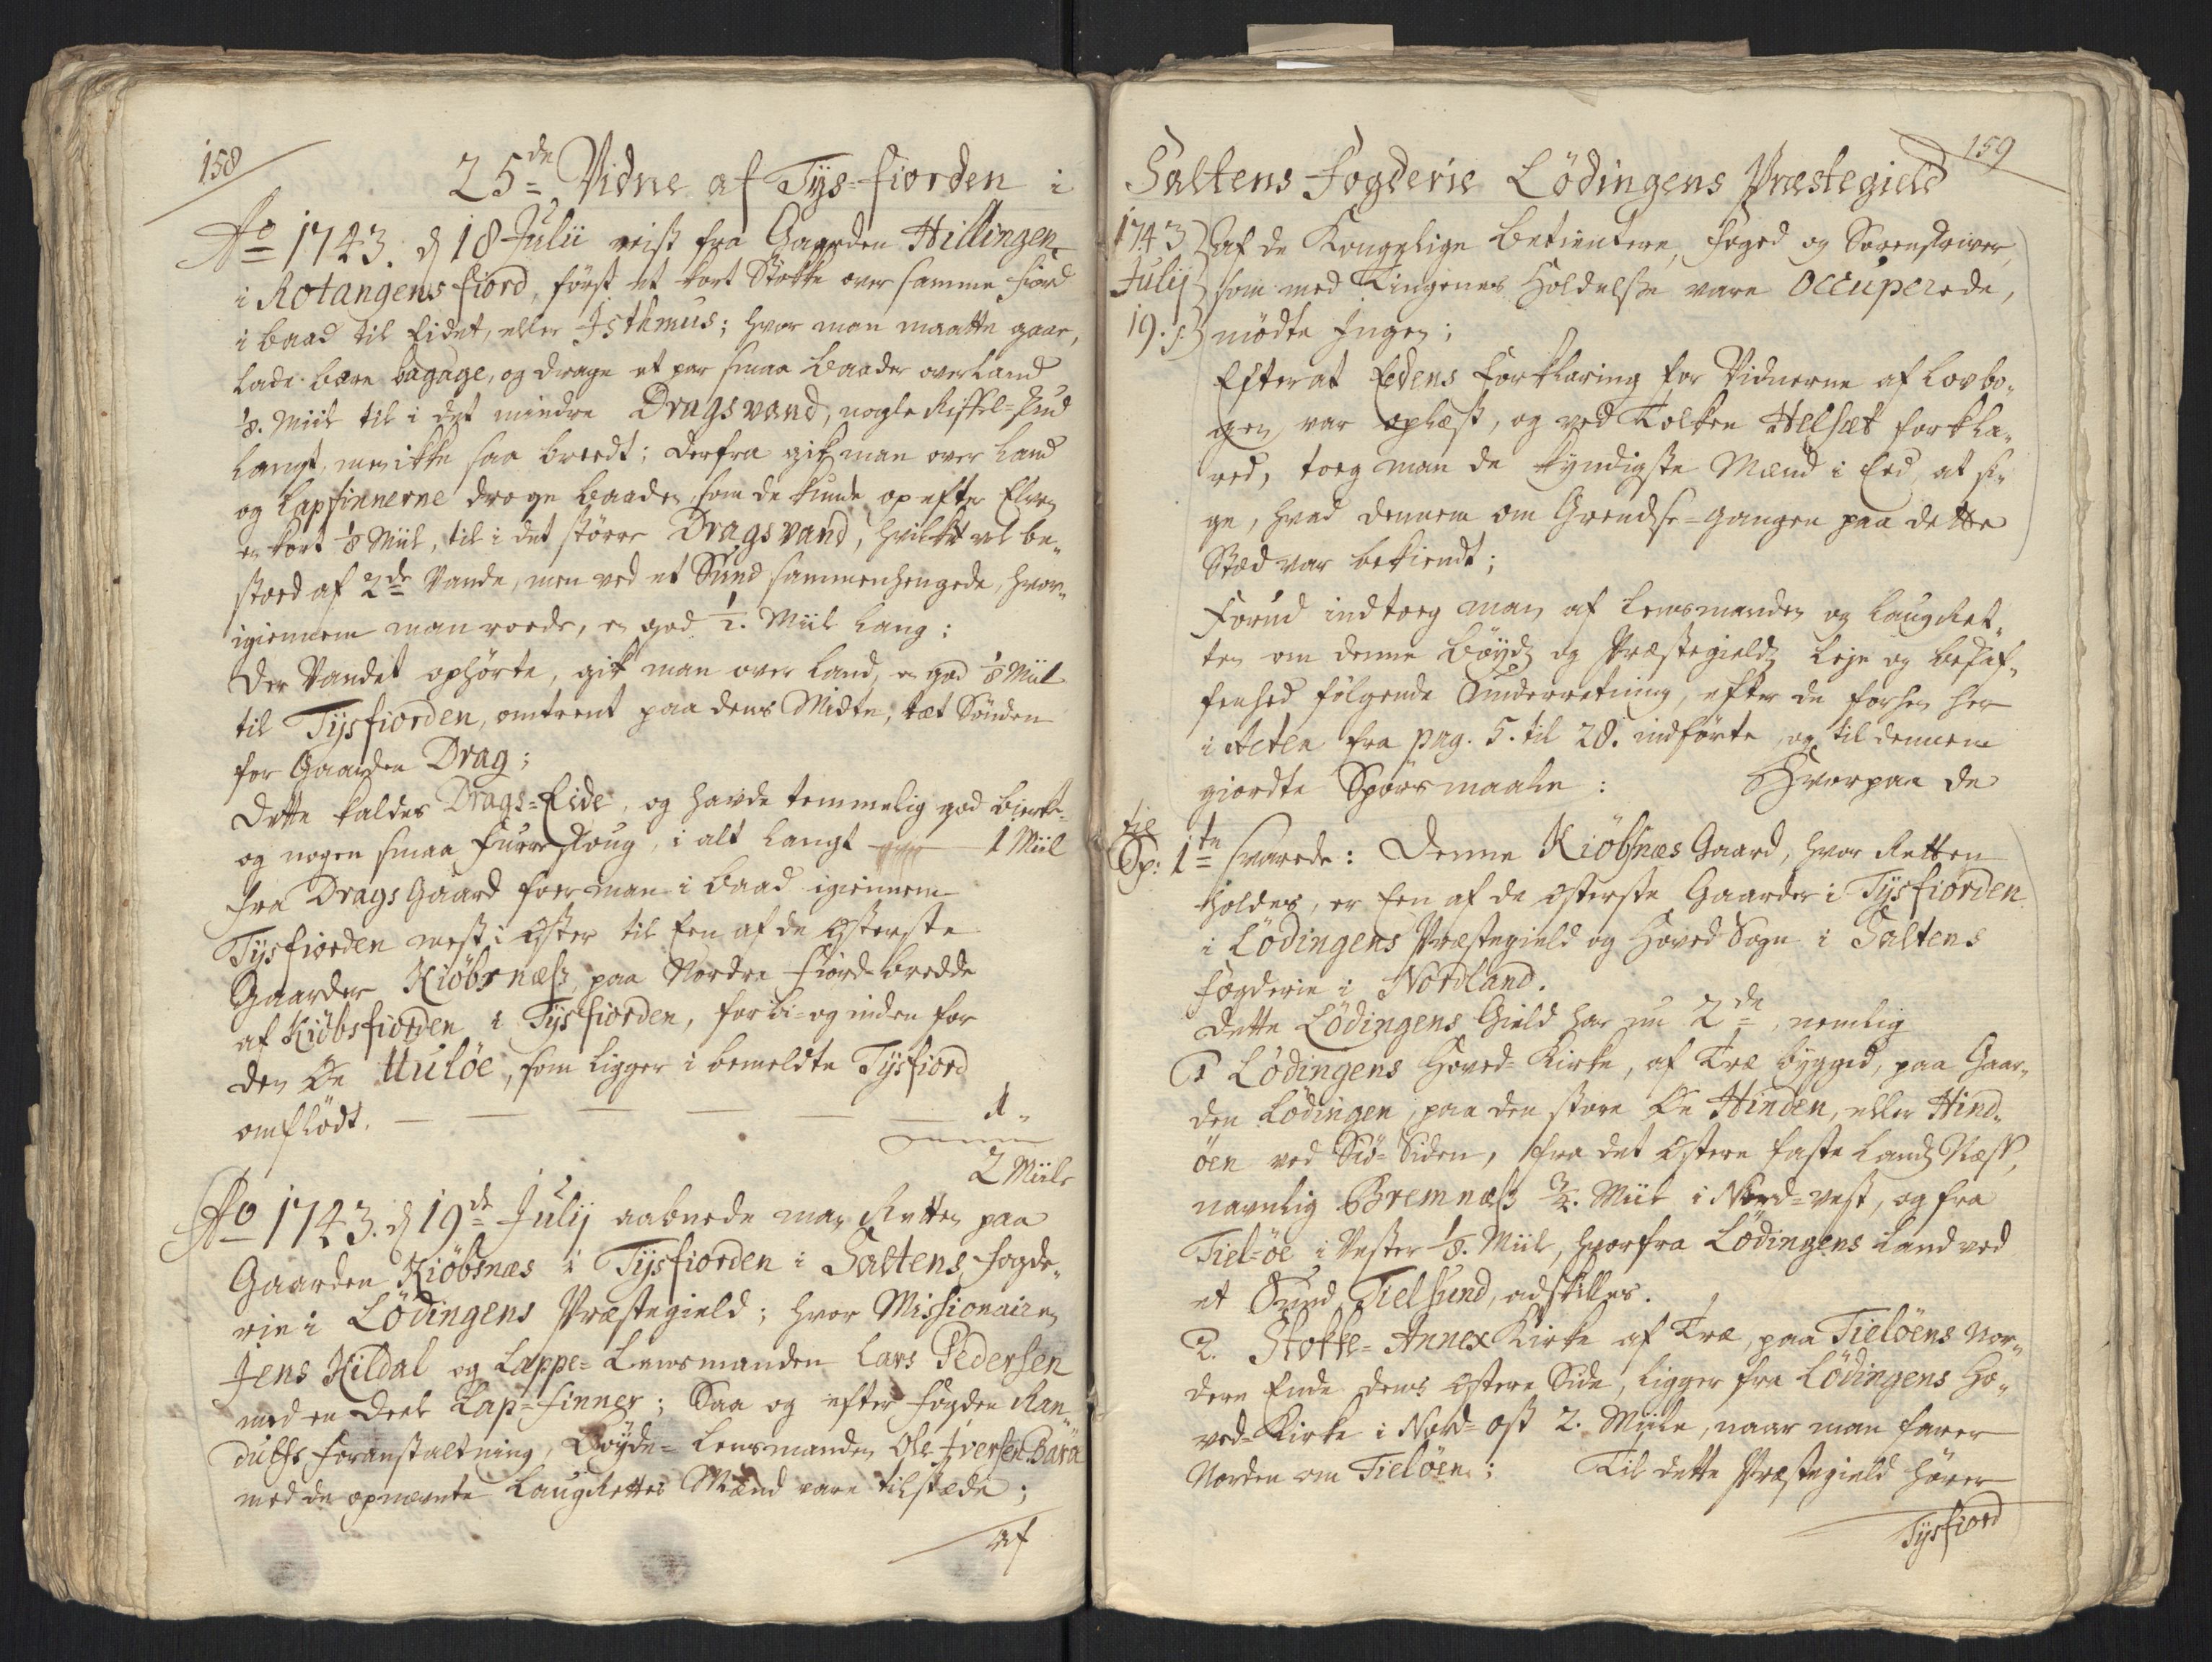 158
25de Vidne af Tys-fiorden i
Ao 1743. d 18 Julii reist fra Gaarden Hillingen
i Rotangens fiord, först et kort Støkke over samme fiord
i baad til Eidet, eller Isthmus; hvor man maatte gaae,
lade bære bagage, og drage et par smaa baader over Land
1/8. Miil til i det mindre Dragsvand, nogle Riffel-skud
langt, men ikke saa breedt; derfra gik man over Land
og Lapfinnerne droge baaden, som de kunde op efter Elven
en kort 1/8 Miil, til i det större Dragsvand, hvilket vel be-
stoed af 2de Vande, men ved et Sund sammenhengede, hvor-
igiennem man roede, en god 1/2. Miil lang:
Der Vandet ophörte, gik man over Land, en god 1/8 Miil
til Tysfiorden, omtrent paa dens Midte, tæt Sönden
for Gaarden Drag;
Dette kaldes Drags-Eide, og havde temmelig god bierke-
og nogen smaa furre skoug, i alt langt 1 Miil
fra Drags Gaard foer man i baad igiennem
Tysfiorden mest i Öster til Een af de österste
Gaarder Kiöbsnæss, paa Nordre fiord-bredde
af Kiöbsfiorden i Tysfiorden, forbi- og inden for
den Öe Uulöe, som ligger i bemeldte Tysfiord
omflödt. — — — — 1 "
2 Miile
Ao 1743. d 19de Julij aabnede man Retten paa
Gaarden Kiöbsnæs i Tysfiorden i Saltens fogde-
rie i Lödingens Præstegield; hvor Missionairen
Jens Kildal og Lappe-Lensmanden Lars Pedersen
med en deel Lap-finner; Saa og efter fogden Ran-
dulfs foranstaltning, Böyde-Lensmanden Ole Iversen Barå
med de opnævnte LaugRettes Mænd vare tilstæde;
af
159
Saltens Fogderie Lödingens Præstegield
1743 af de Kongelige betientere, foged og Sorenskriver,
Julij som med Tingenes Holdelse vare Occuperede,
19. d mödte Ingen;
Efterat Edens Forklaring for Vidnerne af Lovbo-
gen var oplæst, og ved Tolken Helset forkla-
red, toeg man de kyndigste Mænd i Eed, at si-
ge, hvad dennem om Grendse-gangen paa dette
Stæd var bekiendt;
Forud indtoeg man af Lensmanden og LaugRet-
ten om denne böyds og Præstegields Leje og beskaf-
fenhed fölgende Underretning, efter de forhen her
i Acten fra pag. 5. til 28. indförte og til dennem
giordte Spörsmaale: Hvorpaa de
til
Sp: 1te svarede: Denne Kiöbsnæs Gaard, hvor Retten
holdes, er Een af de österste Gaarder i Tysfiorden
i Lödingens Præstegield og Hoved Sogn i Saltens
fogderie i Nordland.
Dette Lödingens Gield har nu 2de, nemlig
1 Lödingens Hoved-Kirke, af Træ bygged, paa Gaar-
den Lödingen, paa den store Öe Hinden, eller Hind-
öen ved Siö-Siden, fra det östere faste Lands Næss,
navnlig Bremnæss 3/4. Miil i Nord-vest, og fra
Tiel-öe i Vester 1/8. Miil, hvorfra Lödingens Land ved
et Sund, Tielsund, adskilles.
2. Stokke-Annex Kirke af Træ, paa Tielöens Nor-
dere Ende dens östere Side, ligger fra Lödingens Ho-
ved-Kirke i Nord-ost 2. Miile, naar man farer
Norden om Tielöen; Til dette Præstegield hörer
Tysfiord